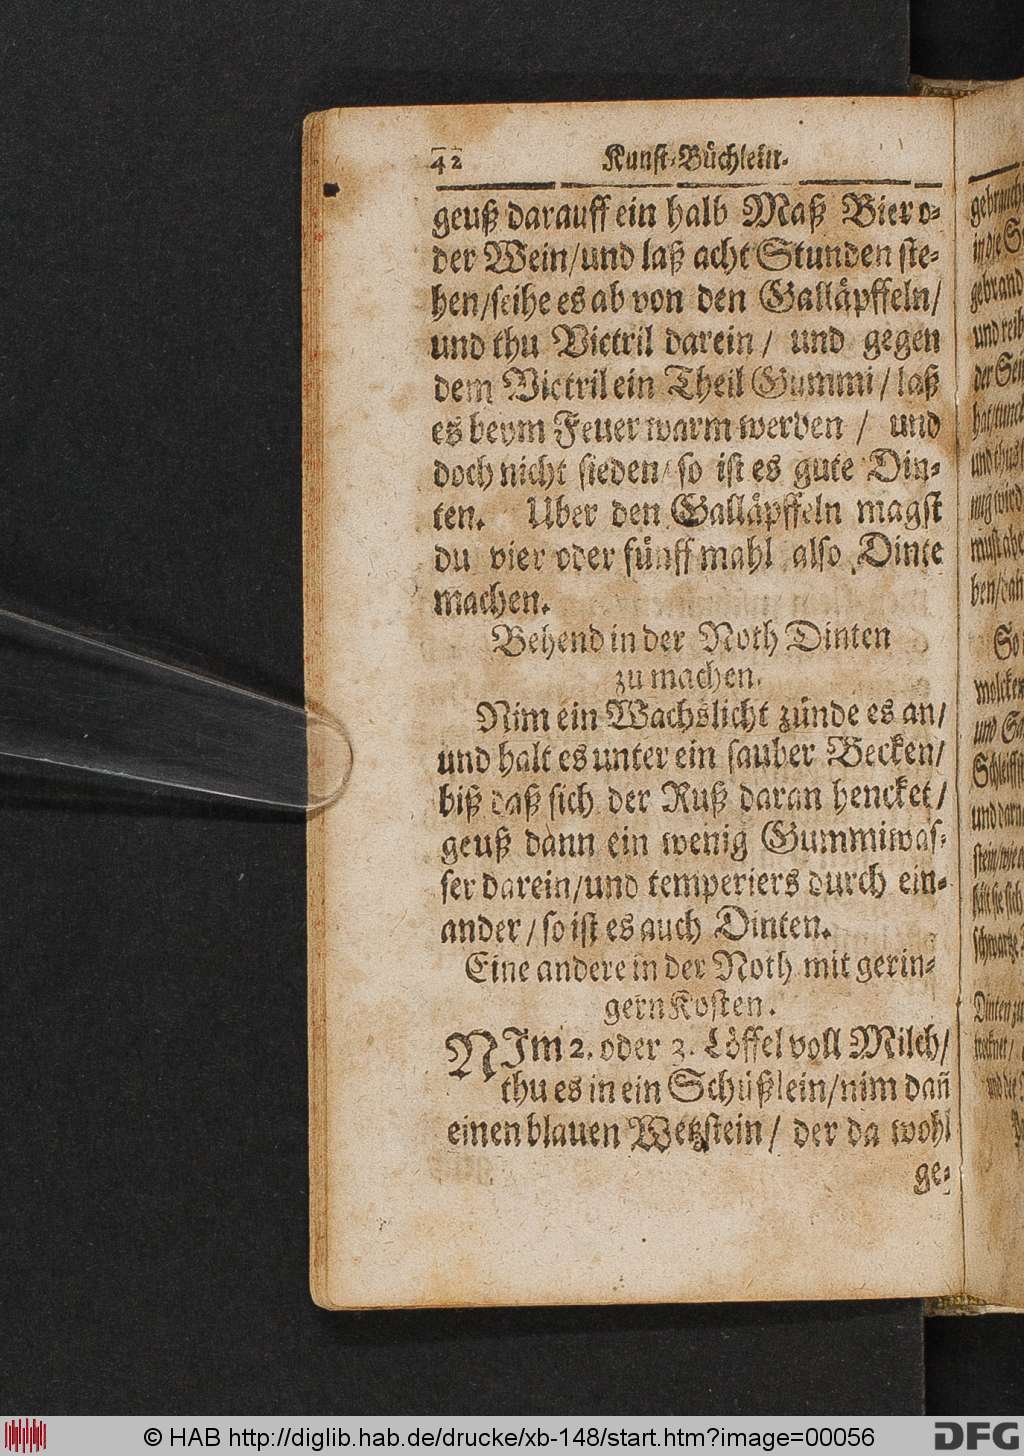 42 Kunst-Büchlein.
geuß darauff ein halb Maß Bier o-
der Wein/und laß acht Stunden ste-
hen/seihe es ab von den Galläpffeln/
und thu Victril darein / und gegen
dem Victril ein Theil Gummi / laß
es beym Feuer warm werden / und
doch nicht sieden/ so ist es gute Din-
ten. Uber den Galläpffeln magst
du vier oder fünff mahl also Dinte
machen.
Behend in der Noth Dinten
zu machen.
Nim ein Wachslicht zünde es an/
und halt es unter ein sauber Becken/
biß daß sich der Ruß daran hencket/
geuß dann ein wenig Gummiwas-
ser darein/und temperiers durch ein-
ander / so ist es auch Dinten.
Eine andere in der Noth mit gerin-
gern Kosten.
NIm 2. oder 3. Löffel voll Milch/
thu es in ein Schüßlein/nim dañ
einen blauen Wetzstein / der da wohl
ge-
gebrand
So
© HAB http://diglib.hab.de/drucke/xb-148/start.htm?image=00056
DFG